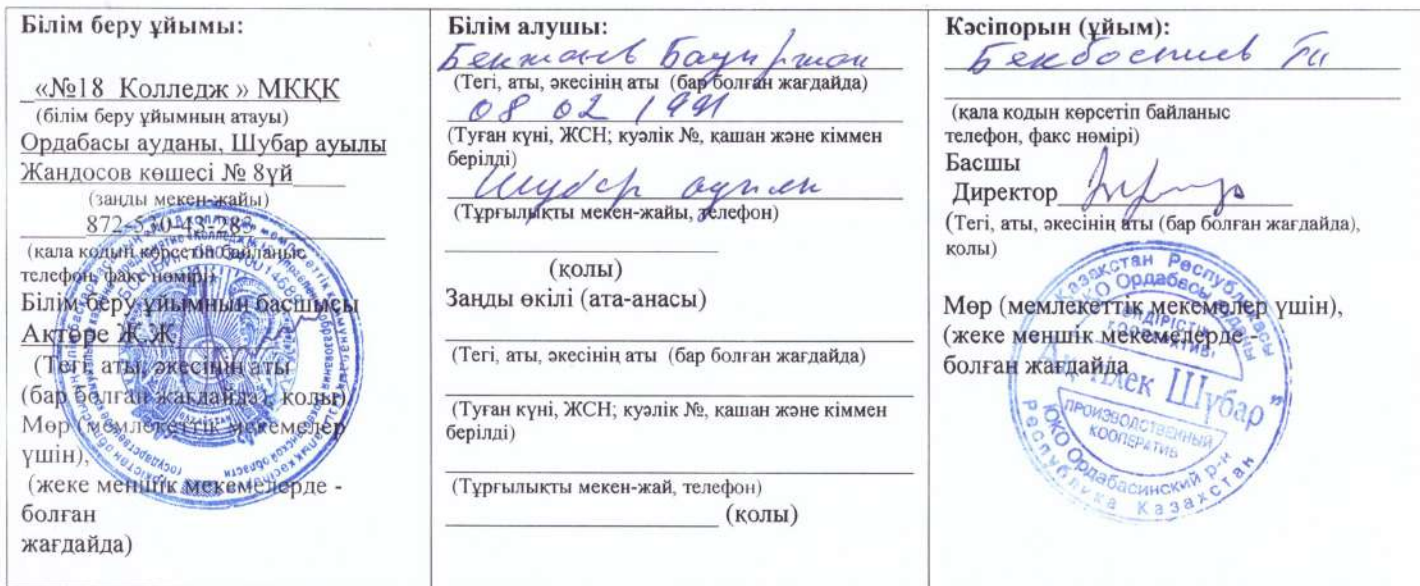 Білім беру ұйымы:
«№18 Колледж » МКҚК
(білім беру ұйымның атауы)
Ордабасы ауданы, Шубар ауылы
Жандосов көшесі № 8үй
(заңды мекен-жайы)
872-530-43-283
(қала кодын көрсетіп байланыс
телефон, факс нөмірі)
Білім беру ұйымның басшысы
Ақтөре Ж.Ж
(Тегі, аты, әкесінің аты
(бар болған жағдайда), қолы)
Мөр (мемлекеттік мекемелер
үшін),
(жеке меншік мекемелерде -
болған
жағдайда)
Білім алушы:
Бауыржан
(Тегі, аты, әкесінің аты (бар болған жағдайда)
08 02 1991
(Туған күні, ЖСН; куәлік №, қашан және кіммен
берілді)
Шубар ауылы
(Тұрғылықты мекен-жайы, телефон)
(қолы)
Заңды өкілі (ата-анасы)
(Тегі, аты, әкесінің аты (бар болған жағдайда)
(Туған күні, ЖСН; куәлік №, қашан және кіммен
берілді)
(Тұрғылықты мекен-жай, телефон)
(қолы)
Кәсіпорын (ұйым):
(қала кодын көрсетіп байланыс
телефон, факс нөмірі)
Басшы
Директор
(Тегі, аты, әкесінің аты (бар болған жағдайда),
қолы)
Мөр (мемлекеттік мекемелер үшін),
(жеке меншік мекемелерде -
болған жағдайда
Қазақстан Республикасы
ОҚО Ордабасы ауданы
ӨНДІРІСТІК
КООПЕРАТИВІ
Шұбар"
ПРОИЗВОДСТВЕННЫЙ
КООПЕРАТИВ
ЮКО Ордабасинский р-н
Республика Казахстан